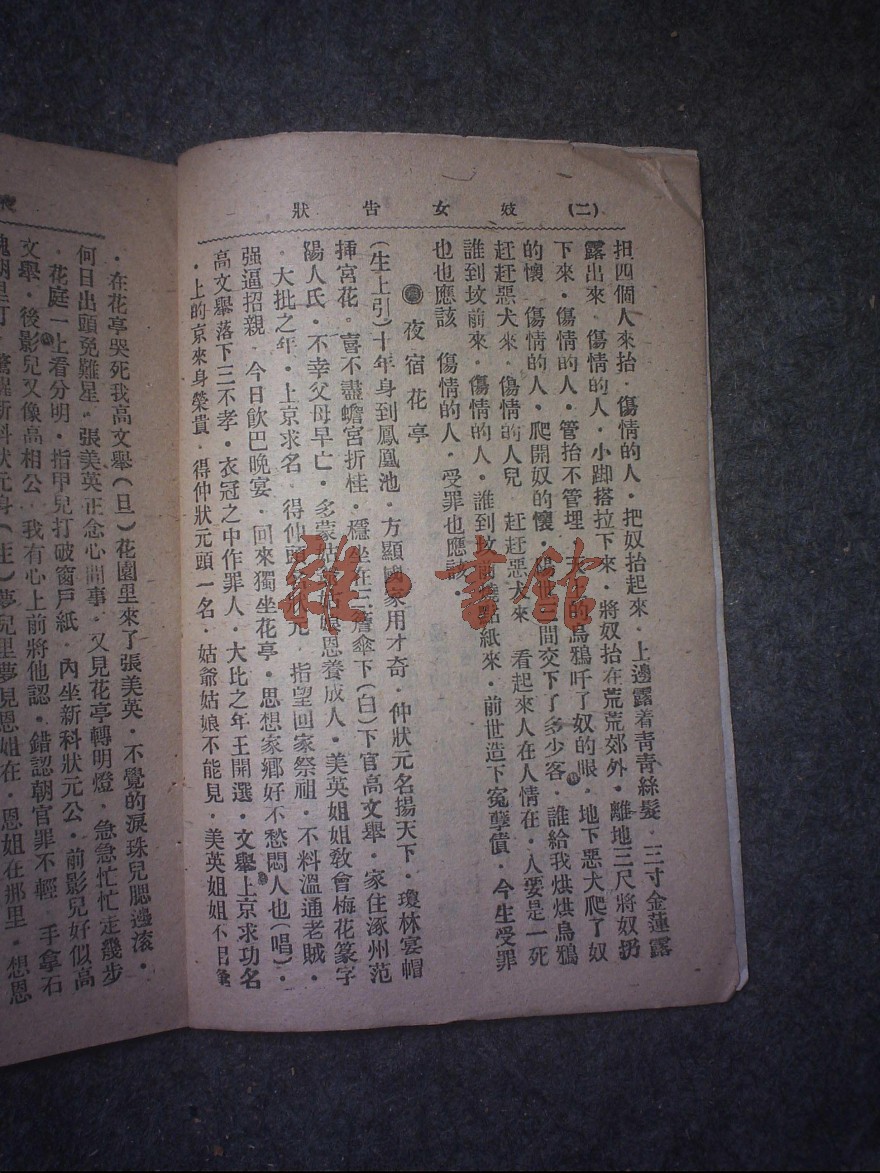 (二) 妓女告狀
担四個人來抬．傷情的人．把奴抬起來．上邊露着青青絲髮．三寸金蓮露
露出來．傷情的人．小踋搭拉下來．將奴抬在荒荒郊外．離地三尺將奴扔
下來．傷情的人．管抬不管埋．天上的烏鴉吀了奴的眼．地下惡犬爬了奴
的懷．傷情的人．爬開奴的懷．間交下了多少客．誰給我烘烘烏鴉
赶赶惡犬來．傷情的人兒．赶赶惡犬來．看起來人在人情在．人要是一死
誰到坟前來．傷情的人．誰到坟前燒點紙來．前世造下冤孽債．今生受罪
也也應該．傷情的人．受罪也應該．
夜宿花亭
(生上引)十年身到鳳凰池．方顯國家用才奇．仲狀元名揚天下．瓊林宴帽
揷宮花．喜不盡蟾宮折桂．穩坐在三簷傘下(白)下官高文舉．家住涿州范
陽人氏．不幸父母早亡．多蒙姑爺姑娘恩養成人．美英姐姐敎會梅花篆字
．大批之年．上京求名．得仲頭名狀元．指望回家祭祖．不料溫通老賊．
强逼招親．今日飲巴晚宴．回來獨坐花亭．思想家鄉好不愁悶人也(唱)．
高文舉落下三不孝．衣冠之中作罪人．大比之年王開選．文舉上京求功名
．上的京來身榮貴．得仲狀元頭一名．姑爺姑娘不能見．美英姐姐不
．在花亭哭死我高文舉(旦)花園里來了張美英．不覺的淚珠兒腮邊滚．
何日出頭免難星．張美英正念心間事．又見花亭轉明燈．急急忙忙走幾步
．花庭一上看分明．指甲兒打破窗戸紙．內坐新科狀元公．前影兒好似高
文舉．後影兒又像高相公．我有心上前將他認．錯認朝官罪不輕．手拿石
塊朝里打．驚醒新科狀元身(生)夢兒里夢見恩姐在．恩姐在那里．想恩
雜·書館